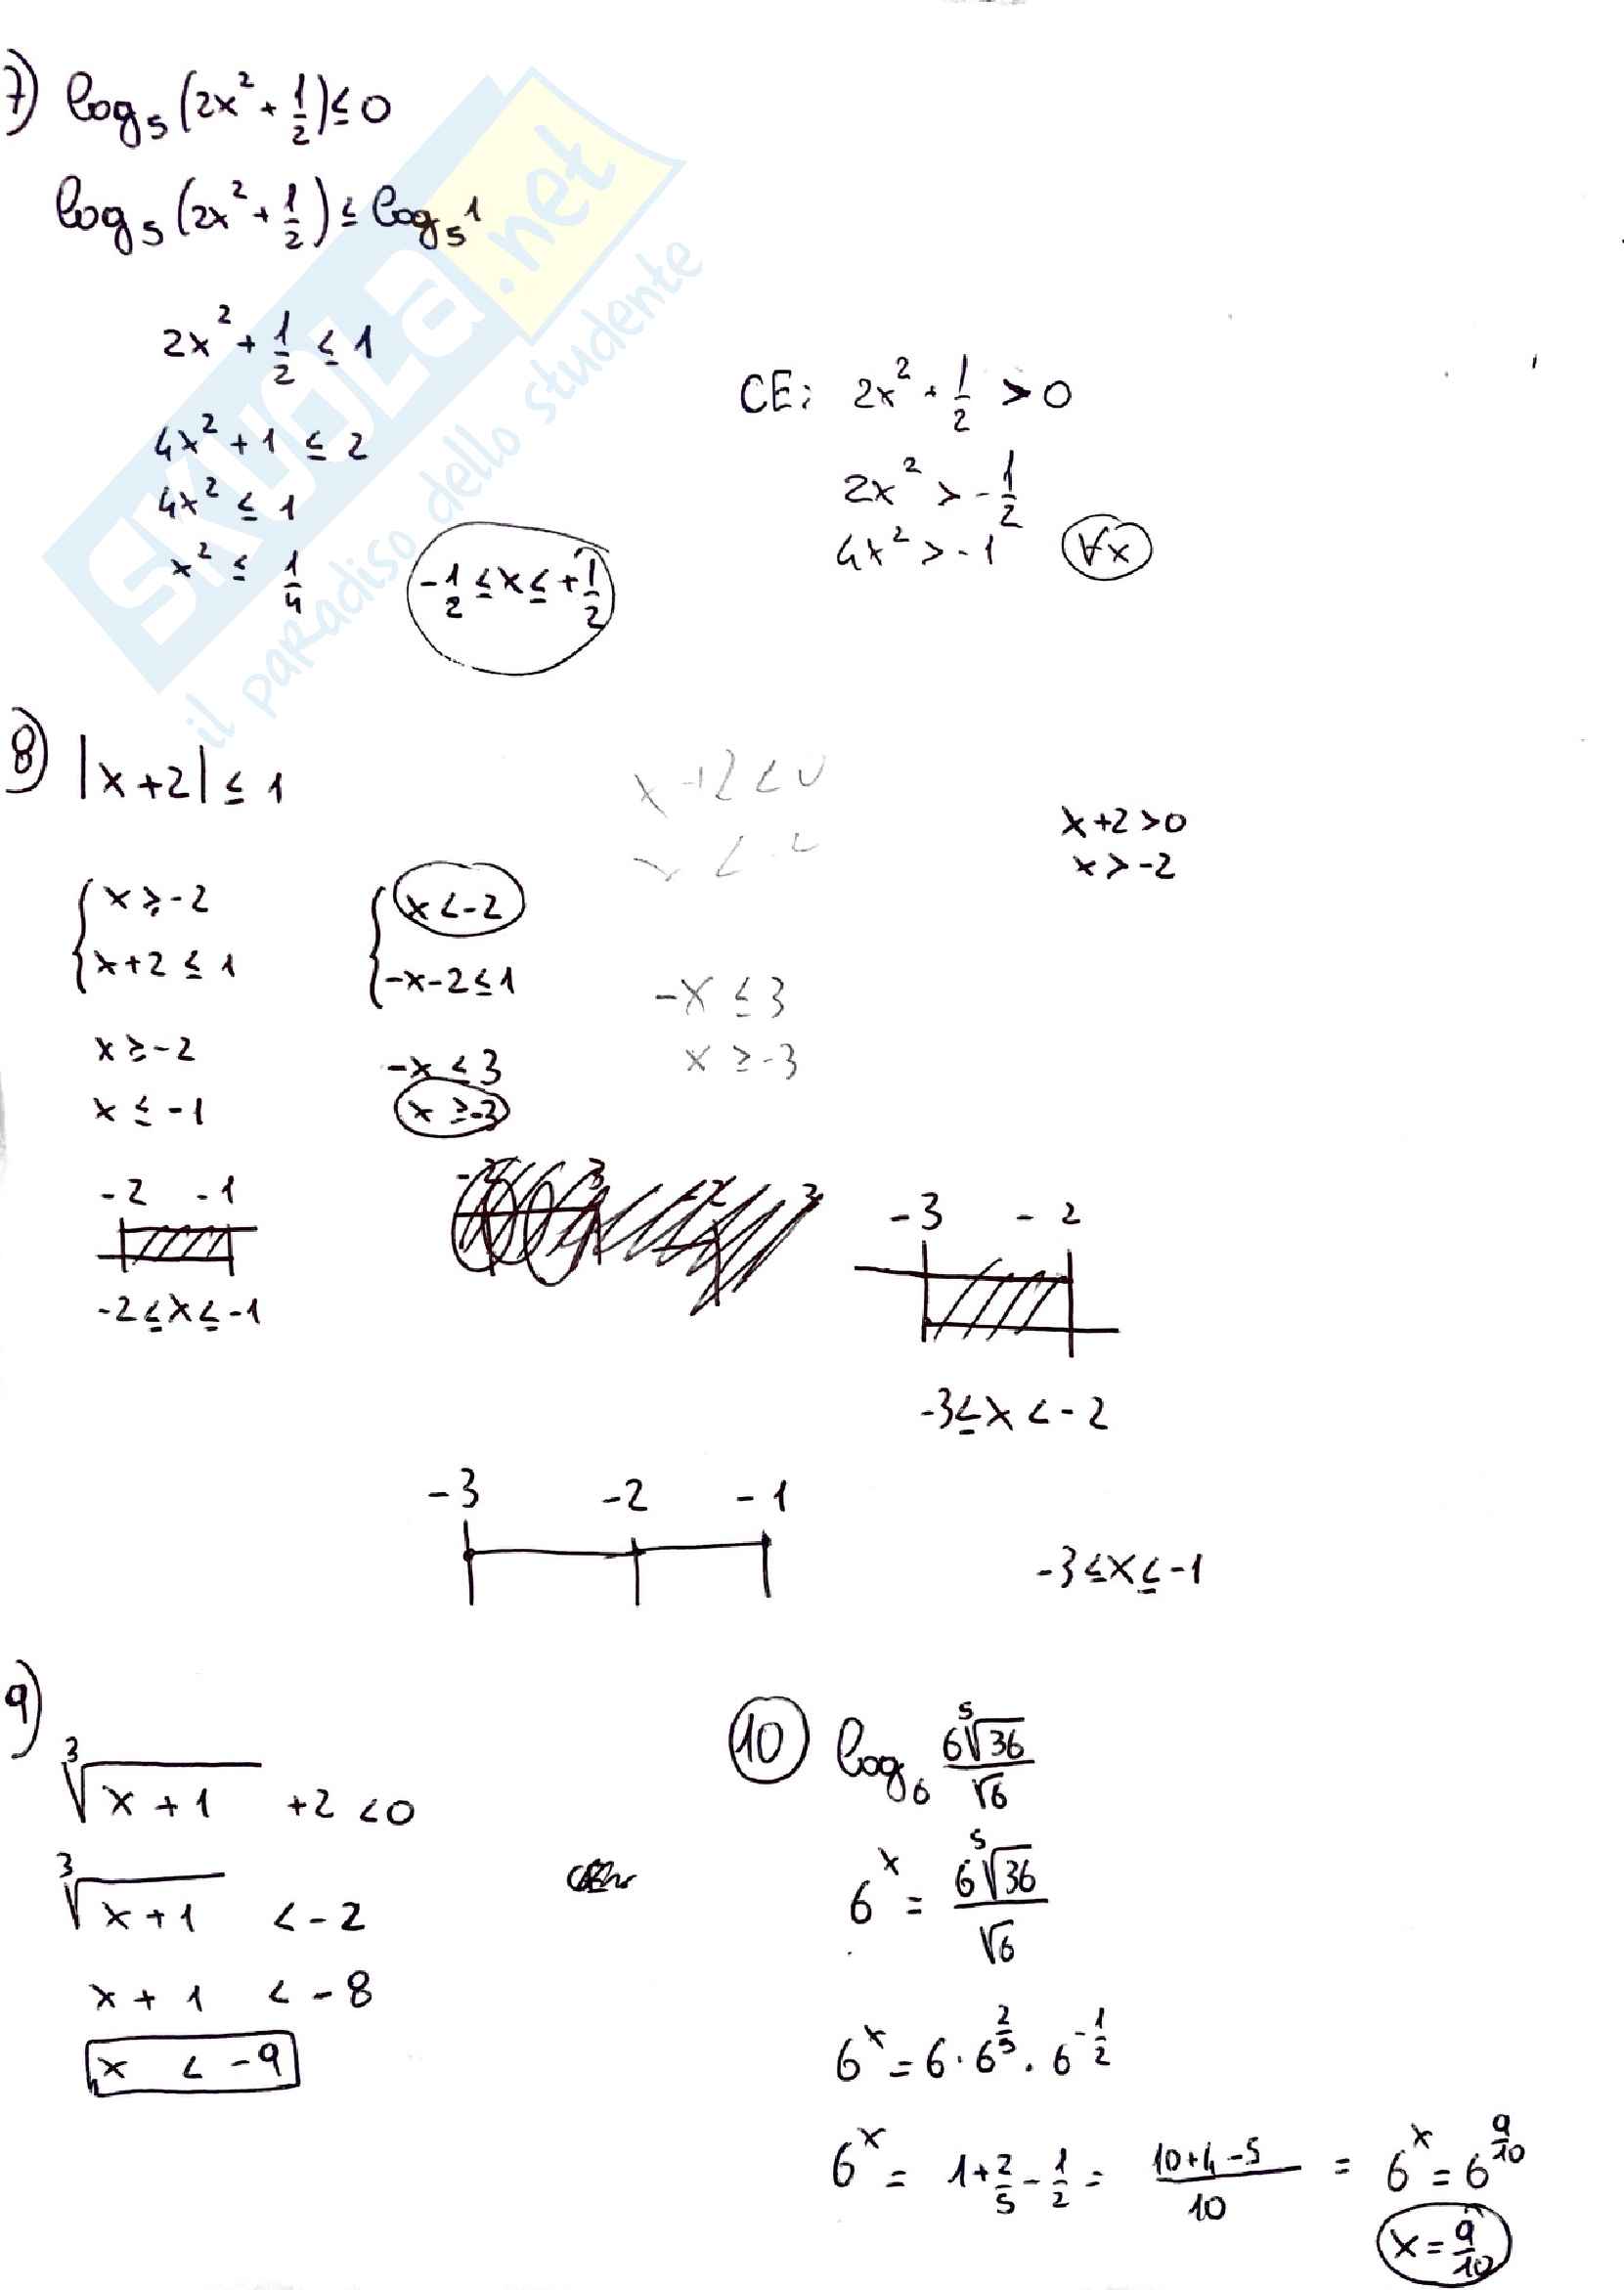 7) log₅(2x² + 1/2) ≤ 0
log₅(2x² + 1/2) ≤ log₅1
2x² + 1/2 ≤ 1
4x² + 1 ≤ 2
4x² ≤ 1
x² ≤ 1/4
-1/2 ≤ x ≤ +1/2
CE: 2x² + 1/2 > 0
2x² > -1/2
4x² > -1 ∀x
SKUOLA.net
il paradiso dello studente
8) |x+2| ≤ 1
x+2<0
x+2>0
x>-2
x ≥ -2
x+2 ≤ 1
x ≥ -2
x ≤ -1
-2 -1
-2 ≤ x ≤ -1
x < -2
-x-2 ≤ 1
-x ≤ 3
x ≥ -3
-x ≤ 3
x ≥ -3
-3 -2
-3 ≤ x < -2
-3 -2 -1
-3 ≤ x ≤ -1
9)
∛(x+1) +2 < 0
∛(x+1) < -2
x + 1 < -8
x < -9
10 log₆ 6⁵√36/√6
6ˣ = 6⁵√36/√6
6ˣ = 6 · 6^(2/5) · 6^(-1/2)
6ˣ = 1 + 2/5 - 1/2 = (10+4-5)/10 = 6ˣ = 6^(9/10)
x = 9/10